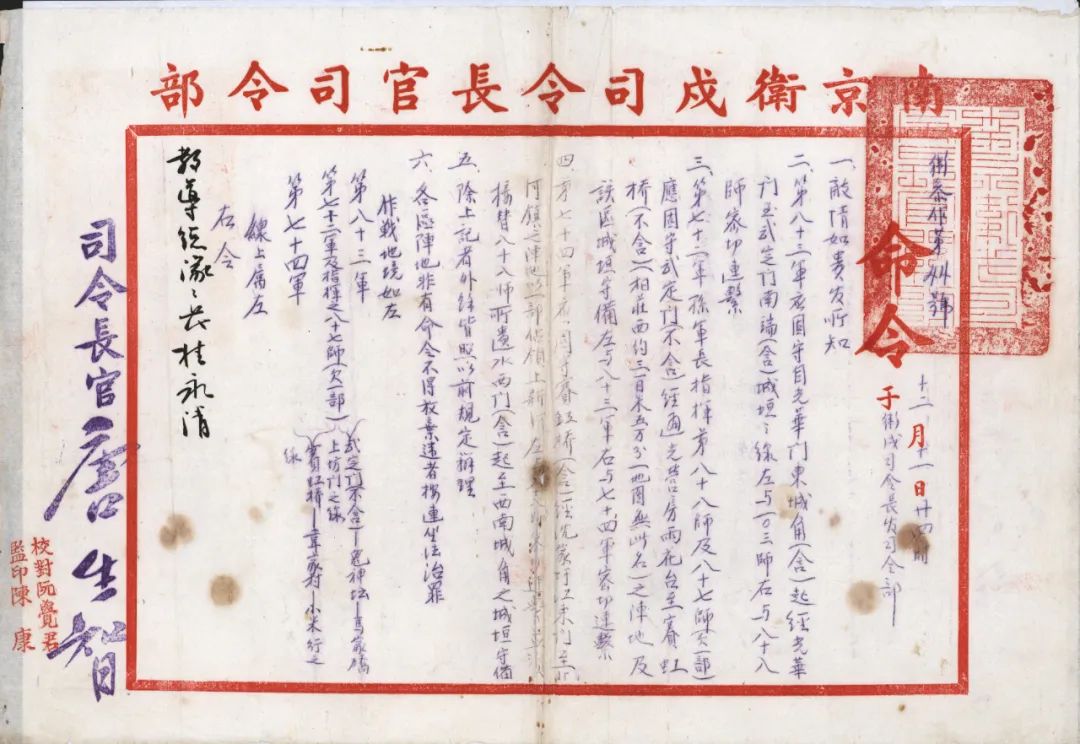 南京衛戍司令長官司令部
命令
十二月十一日廿四时
于衛戍司令長官司令部
衛参作第卅號
一、敵情如貴官所知
二、第八十三軍应固守自光華門東城角(含)起經光華
門至武定門南端(含)城垣之線左与一〇三師右与八十八
師密切連繫
三、第七十二軍孫軍長指揮第八十八師及八十七師(欠一部)
應固守武定門(不含)經通光營房雨花台至賽虹
橋(不含)(相莊西約三百米五万分一地圖無此名)之陣地及
該區城垣守備左与八十三軍右与七十四軍密切連繫
四、第七十四軍应固守賽虹橋(含)經沈家圩江東門至
河鎮之陣地以一部佔領上新河左
橋替八十八師所遺水西門(含)起至西南城角之城垣守備
五、除上記者外餘皆照以前規定辦理
六、各區陣地非有命令不得放棄違者按連坐法治罪
作戰地境如左
第八十三軍
第七十二軍及指揮之八十七師(欠一部)
第七十四軍
武定門(不含)—鬼神坛—馬家橋
上坊門之線
賽虹橋——小米行之
線
線上屬左
右令
教導總隊之長桂永清
司令長官唐生智
校對阮覺君
監印陳康